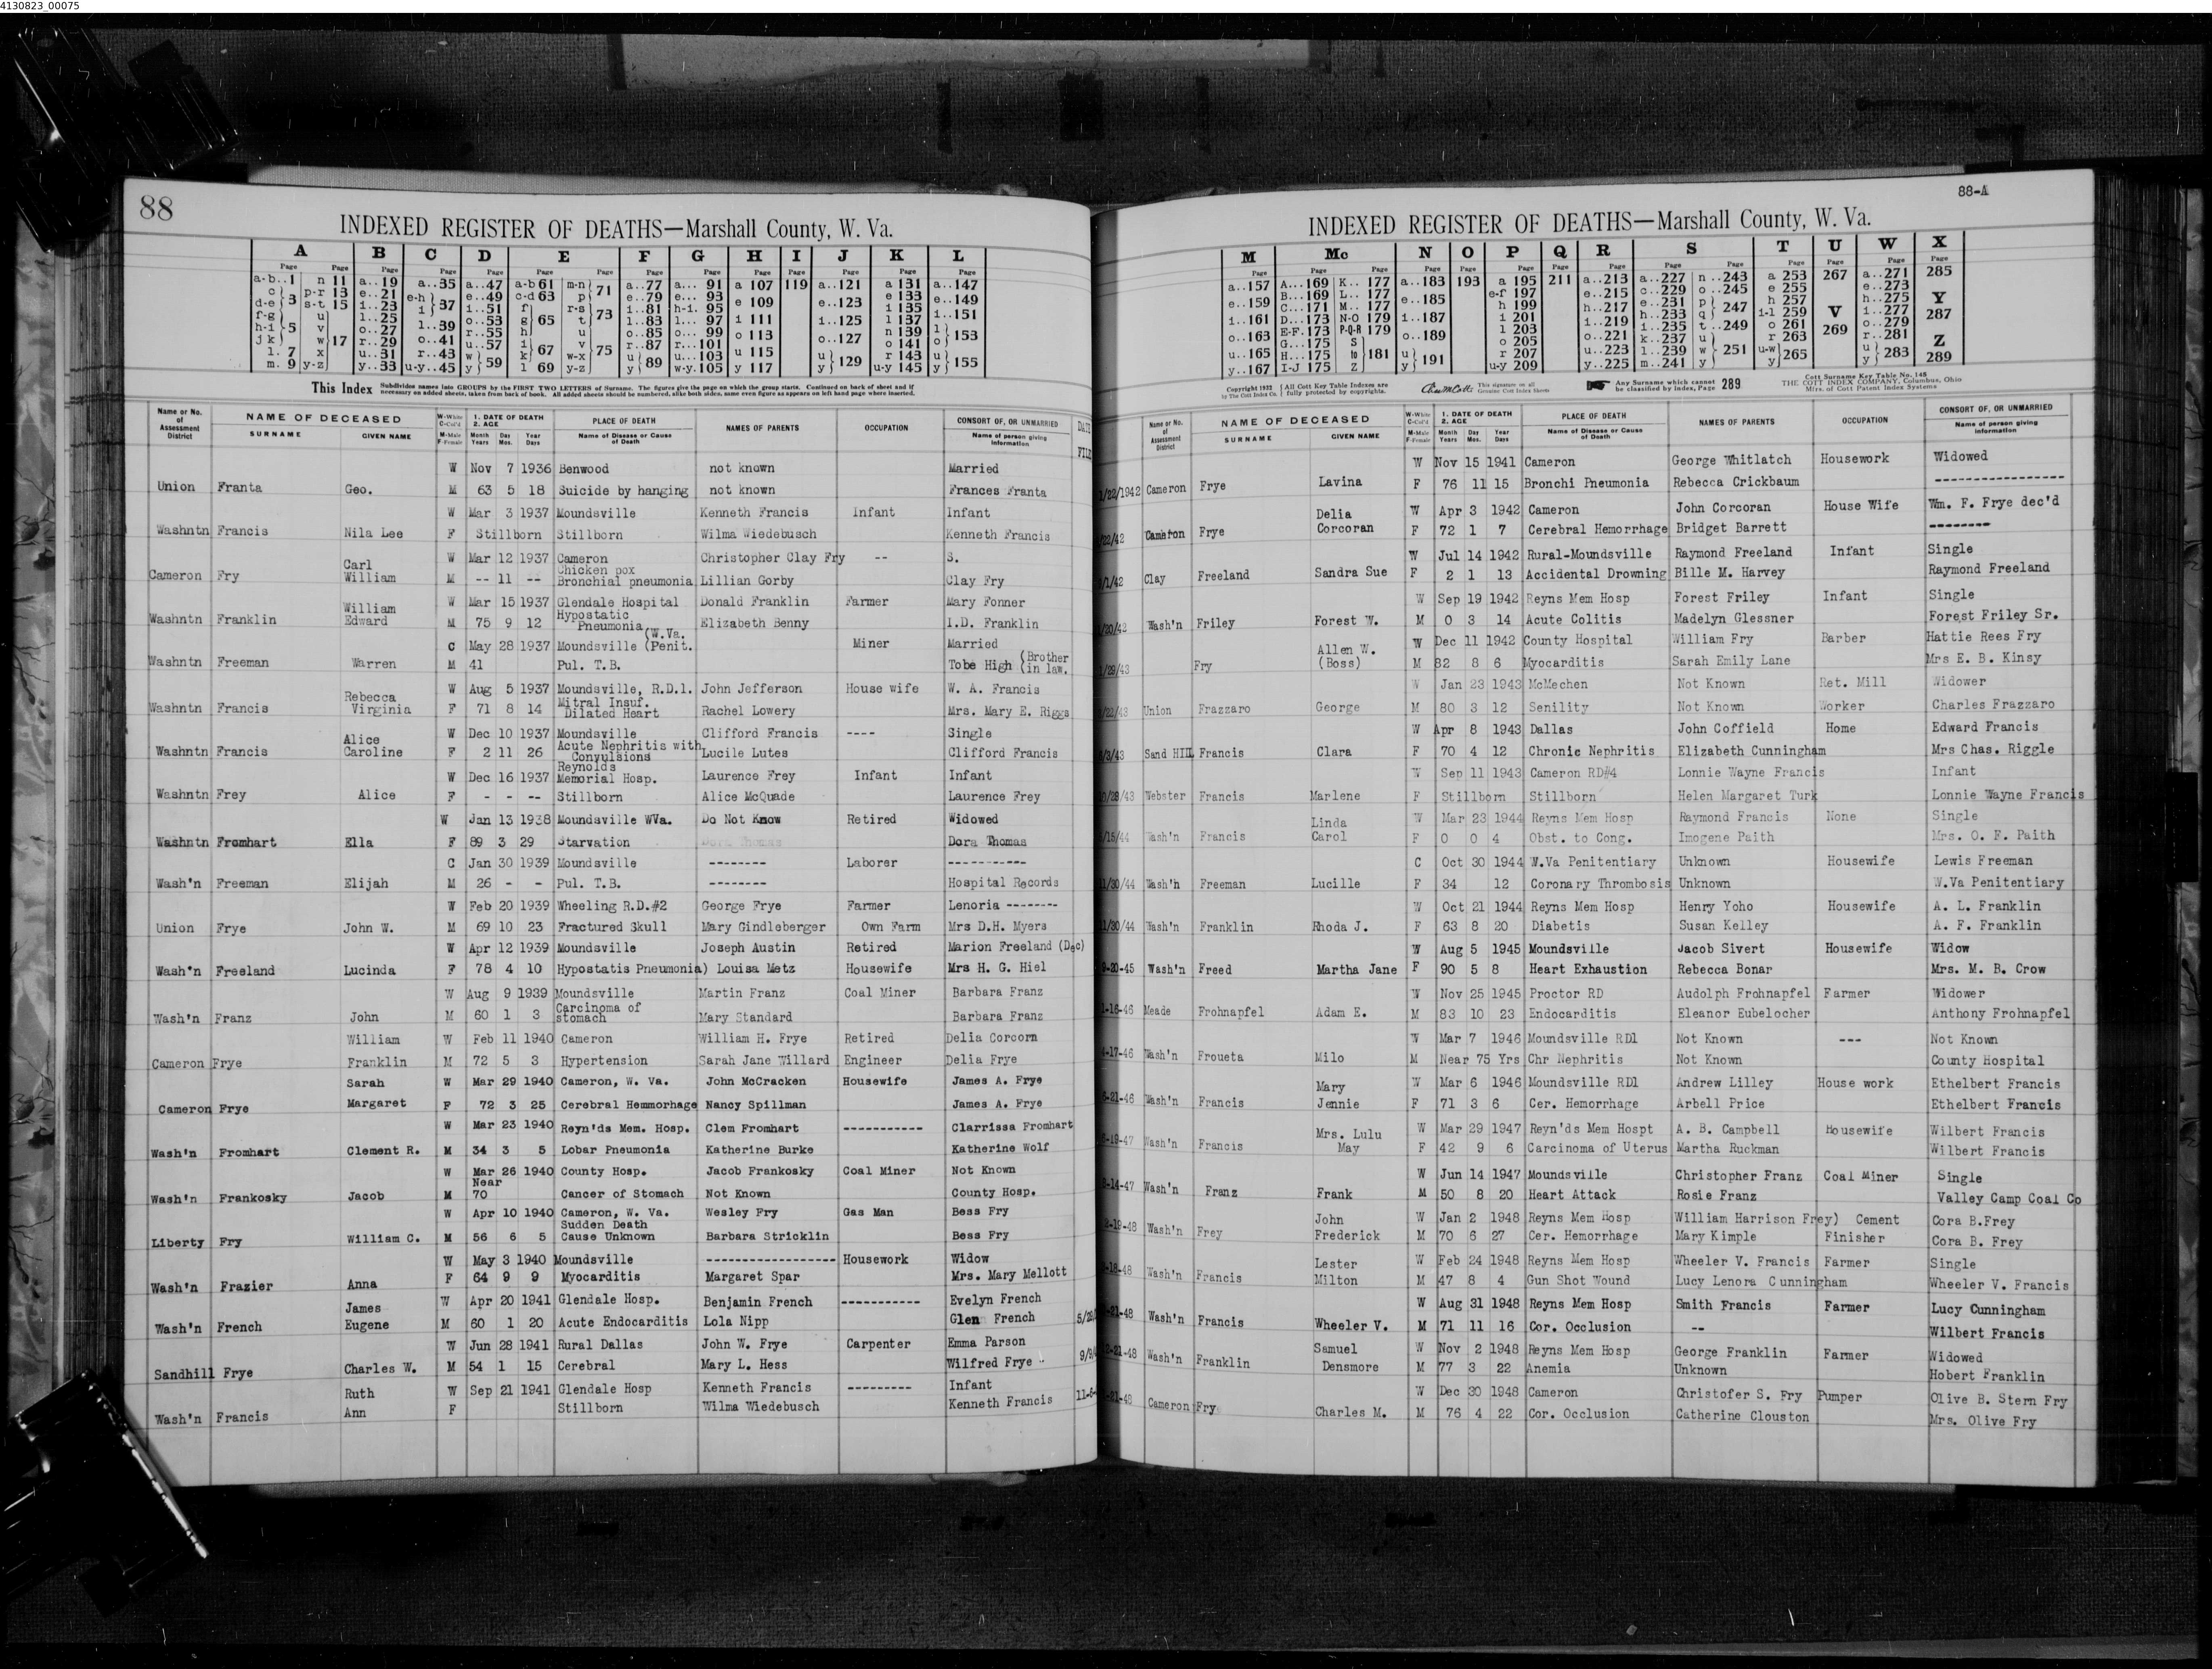 4130823_00075
88
INDEXED REGISTER OF DEATHS—Marshall County, W. Va.
A B C D E F G H I J K L
Page Page Page Page Page Page Page Page Page Page Page Page Page Page
a-b..1 n 11 a..19 a..35 a..47 a-b 61 m-n 71 a..77 a... 91 a 107 119 a..121 a 131 a..147
c 3 p-r 13 e..21 e-h 37 e..49 c-d 63 p e..79 e... 93 e 109 e..123 e 133 e..149
d-e s-t 15 i..23 i i..51 f 65 r-s 73 i..81 h-i. 95 i 111 i..125 i 135 i..151
f-g 5 u 17 l..25 l..39 o..53 g t l..83 l... 97 o 113 o..127 l 137 l 153
h-i v o..27 o..41 r..55 h u 75 o..85 o... 99 u 115 u 129 n 139 o
j k w r..29 r..43 u..57 i 67 v r..87 r...101 y 117 y o 141 u 155
l. 7 x u..31 u-y..45 w 59 k w-x u 89 u...103 r 143 y
m. 9 y-z y..33 y l 69 y-z y w-y.105 u-y 145
This Index Subdivides names into GROUPS by the FIRST TWO LETTERS of Surname. The figures give the page on which the group starts. Continued on back of sheet and if
necessary on added sheets, taken from back of book. All added sheets should be numbered, alike both sides, same even figure as appears on left hand page where inserted.
Name or No. of Assessment District NAME OF DECEASED SURNAME GIVEN NAME W-White C-Col'd M-Male F-Female 1. DATE OF DEATH 2. AGE Month Years Day Mos. Year Days PLACE OF DEATH Name of Disease or Cause of Death NAMES OF PARENTS OCCUPATION CONSORT OF, OR UNMARRIED Name of person giving information
W Nov 7 1936 Benwood not known Married
Union Franta Geo. M 63 5 18 Suicide by hanging not known Frances Franta
W Mar 3 1937 Moundsville Kenneth Francis Infant Infant
Washntn Francis Nila Lee F Stillborn Stillborn Wilma Wiedebusch Kenneth Francis
Carl W Mar 12 1937 Cameron Christopher Clay Fry -- S.
Cameron Fry William M -- 11 -- Chicken pox Bronchial pneumonia Lillian Gorby Clay Fry
William W Mar 15 1937 Glendale Hospital Donald Franklin Farmer Mary Fonner
Washntn Franklin Edward M 75 9 12 Hypostatic Pneumonia Elizabeth Benny I.D. Franklin
C May 28 1937 Moundsville (W.Va. (Penit. Miner Married
Washntn Freeman Warren M 41 Pul. T.B. Tobe High (Brother (in law.
Rebecca W Aug 5 1937 Moundsville, R.D.1. John Jefferson House wife W. A. Francis
Washntn Francis Virginia F 71 8 14 Mitral Insuf. Dilated Heart Rachel Lowery Mrs. Mary E. Riggs
Alice W Dec 10 1937 Moundsville Clifford Francis ---- Single
Washntn Francis Caroline F 2 11 26 Acute Nephritis with Convulsions Lucile Lutes Clifford Francis
W Dec 16 1937 Reynolds Memorial Hosp. Laurence Frey Infant Infant
Washntn Frey Alice F - - -- Stillborn Alice McQuade Laurence Frey
W Jan 13 1938 Moundsville WVa. Do Not Know Retired Widowed
Washntn Fromhart Ella F 89 3 29 Starvation Dora Thomas
C Jan 30 1939 Moundsville -------- Laborer -----------
Wash'n Freeman Elijah M 26 - - Pul. T.B. -------- Hospital Records
W Feb 20 1939 Wheeling R.D.#2 George Frye Farmer Lenoria --------
Union Frye John W. M 69 10 23 Fractured Skull Mary Gindleberger Own Farm Mrs D.H. Myers
W Apr 12 1939 Moundsville Joseph Austin Retired Marion Freeland (Dec)
Wash'n Freeland Lucinda F 78 4 10 Hypostatis Pneumonia) Louisa Metz Housewife Mrs H. G. Hiel
W Aug 9 1939 Moundsville Martin Franz Coal Miner Barbara Franz
Wash'n Franz John M 60 1 3 Carcinoma of stomach Mary Standard Barbara Franz
William W Feb 11 1940 Cameron William H. Frye Retired Delia Corcorn
Cameron Frye Franklin M 72 5 3 Hypertension Sarah Jane Willard Engineer Delia Frye
Sarah W Mar 29 1940 Cameron, W. Va. John McCracken Housewife James A. Frye
Cameron Frye Margaret F 72 3 25 Cerebral Hemmorhage Nancy Spillman James A. Frye
W Mar 23 1940 Reyn'ds Mem. Hosp. Clem Fromhart ----------- Clarrissa Fromhart
Wash'n Fromhart Clement R. M 34 3 5 Lobar Pneumonia Katherine Burke Katherine Wolf
W Mar 26 1940 County Hosp. Jacob Frankosky Coal Miner Not Known
Wash'n Frankosky Jacob M Near 70 Cancer of Stomach Not Known County Hosp.
W Apr 10 1940 Cameron, W. Va. Wesley Fry Gas Man Bess Fry
Liberty Fry William C. M 56 6 5 Sudden Death Cause Unknown Barbara Stricklin Bess Fry
W May 3 1940 Moundsville ----------------- Housework Widow
Wash'n Frazier Anna F 64 9 9 Myocarditis Margaret Spar Mrs. Mary Mellott
James W Apr 20 1941 Glendale Hosp. Benjamin French ----------- Evelyn French
Wash'n French Eugene M 60 1 20 Acute Endocarditis Lola Nipp Glen French
W Jun 28 1941 Rural Dallas John W. Frye Carpenter Emma Parson
Sandhill Frye Charles W. M 54 1 15 Cerebral Mary L. Hess Wilfred Frye
Ruth W Sep 21 1941 Glendale Hosp Kenneth Francis --------- Infant
Wash'n Francis Ann F Stillborn Wilma Wiedebusch Kenneth Francis
88-A
INDEXED REGISTER OF DEATHS—Marshall County, W. Va.
M Mc N O P Q R S T U W X
Page Page Page Page Page Page Page Page Page Page Page Page Page Page
a..157 A...169 K.. 177 a..183 193 a 195 211 a..213 a..227 n ..243 a 253 267 a..271 285
e..159 B...169 L.. 177 e..185 e-f 197 e..215 c..229 o ..245 e 255 e..273 Y
i..161 C...171 M.. 177 i..187 h 199 h..217 e..231 p 247 h 257 V h..275 287
o..163 D...173 N-O 179 o..189 i 201 i..219 h..233 q i-l 259 269 i..277 Z
u..165 E-F.173 P-Q-R 179 u 191 l 203 o..221 i..235 t ..249 o 261 o..279 289
y..167 G...175 S to Z 181 y o 205 u..223 k..237 u 251 r 263 r..281
H...175 r 207 y..225 l..239 w u-w 265 u 283
I-J 175 u-y 209 m..241 y y y
Copyright 1932 by The Cott Index Co. All Cott Key Table Indexes are fully protected by copyrights. This signature on all Genuine Cott Index Sheets Any Surname which cannot be classified by Index, Page 289 Cott Surname Key Table No. 14S
THE COTT INDEX COMPANY, Columbus, Ohio
Mfrs. of Cott Patent Index Systems
Name or No. of Assessment District NAME OF DECEASED SURNAME GIVEN NAME W-White C-Col'd M-Male F-Female 1. DATE OF DEATH 2. AGE Month Years Day Mos. Year Days PLACE OF DEATH Name of Disease or Cause of Death NAMES OF PARENTS OCCUPATION CONSORT OF, OR UNMARRIED Name of person giving information
W Nov 15 1941 Cameron George Whitlatch Housework Widowed
Cameron Frye Lavina F 76 11 15 Bronchi Pneumonia Rebecca Crickbaum ----------------
Delia W Apr 3 1942 Cameron John Corcoran House Wife Wm. F. Frye dec'd
Cameron Frye Corcoran F 72 1 7 Cerebral Hemorrhage Bridget Barrett --------
W Jul 14 1942 Rural-Moundsville Raymond Freeland Infant Single
Clay Freeland Sandra Sue F 2 1 13 Accidental Drowning Bille M. Harvey Raymond Freeland
W Sep 19 1942 Reyns Mem Hosp Forest Friley Infant Single
Wash'n Friley Forest W. M 0 3 14 Acute Colitis Madelyn Glessner Forest Friley Sr.
Allen W. W Dec 11 1942 County Hospital William Fry Barber Hattie Rees Fry
Fry (Boss) M 82 8 6 Myocarditis Sarah Emily Lane Mrs E. B. Kinsy
W Jan 23 1943 McMechen Not Known Ret. Mill Widower
Union Frazzaro George M 80 3 12 Senility Not Known Worker Charles Frazzaro
W Apr 8 1943 Dallas John Coffield Home Edward Francis
Sand Hill Francis Clara F 70 4 12 Chronic Nephritis Elizabeth Cunningham Mrs Chas. Riggle
W Sep 11 1943 Cameron RD#4 Lonnie Wayne Francis Infant
Webster Francis Marlene F Stillborn Stillborn Helen Margaret Turk Lonnie Wayne Francis
Linda W Mar 23 1944 Reyns Mem Hosp Raymond Francis None Single
Wash'n Francis Carol F 0 0 4 Obst. to Cong. Imogene Paith Mrs. O. F. Paith
C Oct 30 1944 W.Va Penitentiary Unknown Housewife Lewis Freeman
Wash'n Freeman Lucille F 34 12 Coronary Thrombosis Unknown W.Va Penitentiary
W Oct 21 1944 Reyns Mem Hosp Henry Yoho Housewife A. L. Franklin
Wash'n Franklin Rhoda J. F 63 8 20 Diabetis Susan Kelley A. F. Franklin
W Aug 5 1945 Moundsville Jacob Sivert Housewife Widow
Wash'n Freed Martha Jane F 90 5 8 Heart Exhaustion Rebecca Bonar Mrs. M. B. Crow
W Nov 25 1945 Proctor RD Audolph Frohnapfel Farmer Widower
Meade Frohnapfel Adam E. M 83 10 23 Endocarditis Eleanor Eubelocher Anthony Frohnapfel
W Mar 7 1946 Moundsville RD1 Not Known --- Not Known
Wash'n Froueta Milo M Near 75 Yrs Chr Nephritis Not Known County Hospital
Mary W Mar 6 1946 Moundsville RD1 Andrew Lilley House work Ethelbert Francis
Wash'n Francis Jennie F 71 3 6 Cer. Hemorrhage Arbell Price Ethelbert Francis
Mrs. Lulu W Mar 29 1947 Reyn'ds Mem Hospt A. B. Campbell Housewife Wilbert Francis
Wash'n Francis May F 42 9 6 Carcinoma of Uterus Martha Ruckman Wilbert Francis
W Jun 14 1947 Moundsville Christopher Franz Coal Miner Single
Wash'n Franz Frank M 50 8 20 Heart Attack Rosie Franz Valley Camp Coal Co
John W Jan 2 1948 Reyns Mem Hosp William Harrison Frey) Cement Cora B.Frey
Wash'n Frey Frederick M 70 6 27 Cer. Hemorrhage Mary Kimple Finisher Cora B. Frey
Lester W Feb 24 1948 Reyns Mem Hosp Wheeler V. Francis Farmer Single
Wash'n Francis Milton M 47 8 4 Gun Shot Wound Lucy Lenora Cunningham Wheeler V. Francis
W Aug 31 1948 Reyns Mem Hosp Smith Francis Farmer Lucy Cunningham
Wash'n Francis Wheeler V. M 71 11 16 Cor. Occlusion -- Wilbert Francis
Samuel W Nov 2 1948 Reyns Mem Hosp George Franklin Farmer Widowed
Wash'n Franklin Densmore M 77 3 22 Anemia Unknown Hobert Franklin
W Dec 30 1948 Cameron Christofer S. Fry Pumper Olive B. Stern Fry
Cameron Fry Charles M. M 76 4 22 Cor. Occlusion Catherine Clouston Mrs. Olive Fry